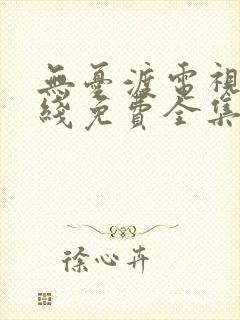 無憂渡電視
綫免費全集
徐心卉